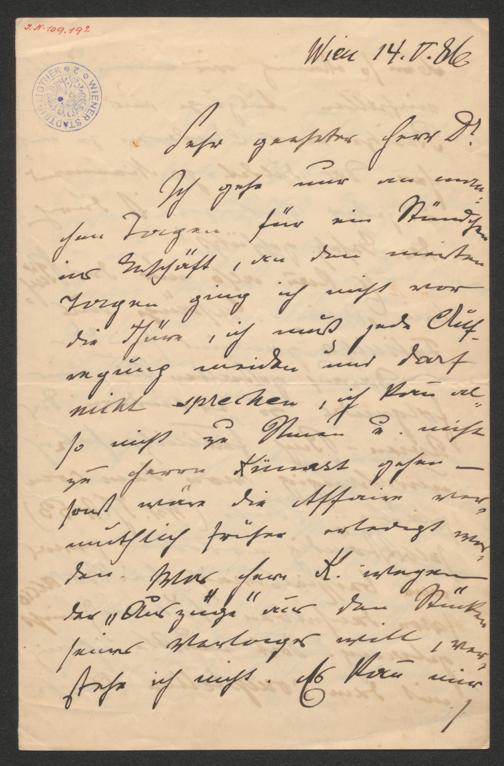 J.N. 109.192
WIENER STADTBIBLIOTHEK
Wien 14. V. 86
Sehr geehrter Herr Dr
Ich gehe nur an man-
chen Tagen für ein Stündchen
ins Geschäft, an den meisten
Tagen ging ich nicht vor
die Thüre, ich muß jede Auf-
regung meiden und darf
nicht sprechen, ich kann al-
so nicht zu Ihnen u. nicht
zu Herrn Künast gehen –
sonst wäre die Affaire ver-
muthlich früher erledigt wor-
den. Was Herr K. wegen
der „Auszüge" aus den Stücken
seines Verlages will, ver-
stehe ich nicht. Es kann mir